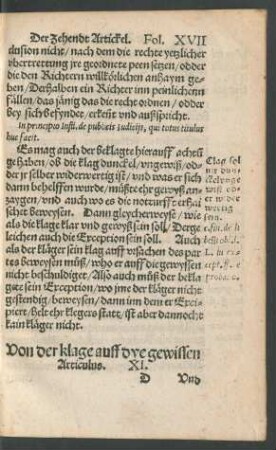 Der Zehendt Artickel. Fol. XVII
clusion nicht / nach dem die rechte yetzlicher
vbertrettung jre geordnete peen setzen / odder
die den Richtern willkörlichen anhaym ge-
ben / Derhalben ein Richter inn peinlichenn
fällen / das jänig das die recht ordnen / odder
bey sich befyndet / erkent vnd außspricht.
in principio Insti. de publicis iudicijs, qui totus titulus
huc facit.
Es mag auch der beklagte hierauff achtũ
gehaben / ob die klag dunckel / vngewiß / od-
der je selber widerwertig ist / vnd was er sich
dann behelffen würde / das müste ehr gewyß an-
zaygen / vnd auch wo es die notturfft erhai-
schet beweysen. Dann gleycherweyß / wie
als die klage klar vnd gewyß sein soll / Derge
lichen auch die Exception sein soll. Auch
als der kläger sein klag auß vrsachen des par
tes beweysen müß / who er auff die gewyssen
nicht beschuldiget / Also auch müß der bekla
gte sein Exception / wo jme der kläger nicht
gestendig / beweysen / dann inn dem er Exci-
piert / helt ehr klegers statt / ist aber dannocht
kain kläger nicht.
Klag sol
nit dun-
wist od-
er wider
wertig
sein.
L. in ex
cept. ff. e
probatio.
Von der klage auff dye gewissen
Articulus. XI.
D Vnd